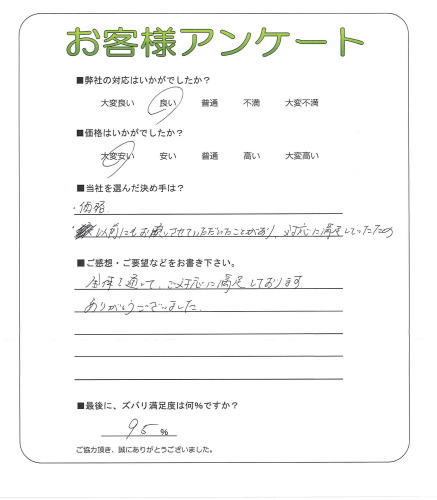 お客様アンケート
■弊社の対応はいかがでしたか？
大変良い 良い 普通 不満 大変不満
■価格はいかがでしたか？
大変安い 安い 普通 高い 大変高い
■当社を選んだ決め手は？
・価格
・以前にもお願いさせていただいたことがあり、対応に満足していたため
■ご感想・ご要望などをお書き下さい。
全体を通して、ご対応に満足しております。
ありがとうございました。
■最後に、ズバリ満足度は何％ですか？
95 ％
ご協力頂き、誠にありがとうございました。